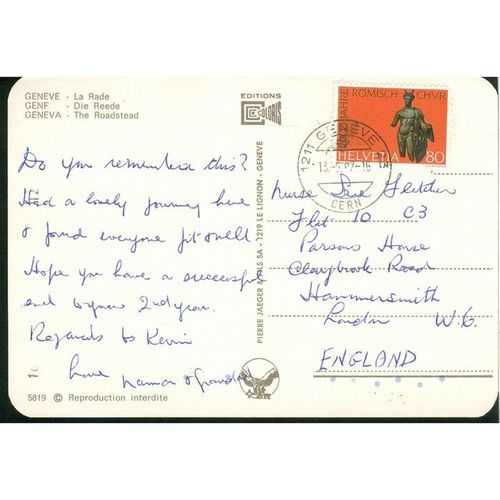 GENEVE - La Rade
GENF - Die Reede
GENEVA - The Roadstead
EDITIONS
JAHRE RÖMISCH CHUR
HELVETIA 80
1211 GENEVE 23
CERN
PIERRE JAEGER & FILS SA - 1219 LE LIGNON - GENEVE
Do you remember this?
Had a lovely journey here
& found everyone fit & well
Hope you have a successful
end to your 2nd year.
Regards to Kevin
love nanna & grandad
Nurse Sue Fletcher
Flat 10 C3
Parsons House
Claybrook Road
Hammersmith
London W.6.
ENGLAND
5819 © Reproduction interdite